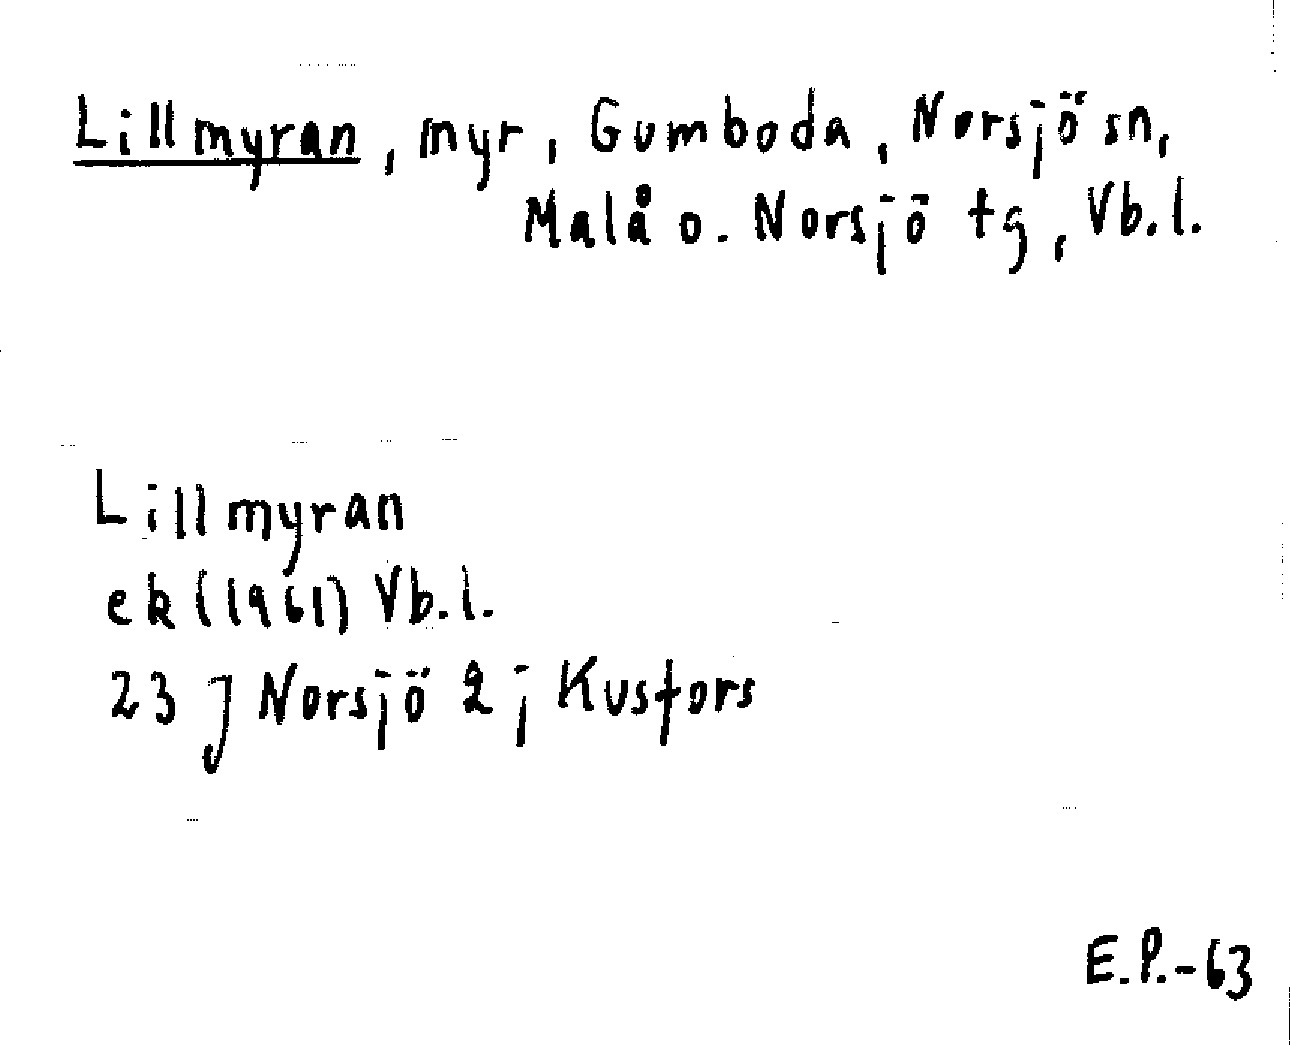 Lillmyran, myr, Gumboda, Norsjö sn,
Malå o. Norsjö tg, Vb.l.
Lillmyran
ek (1961) Vb.l.
23 J Norsjö 2 j Kusfors
E.P.-63